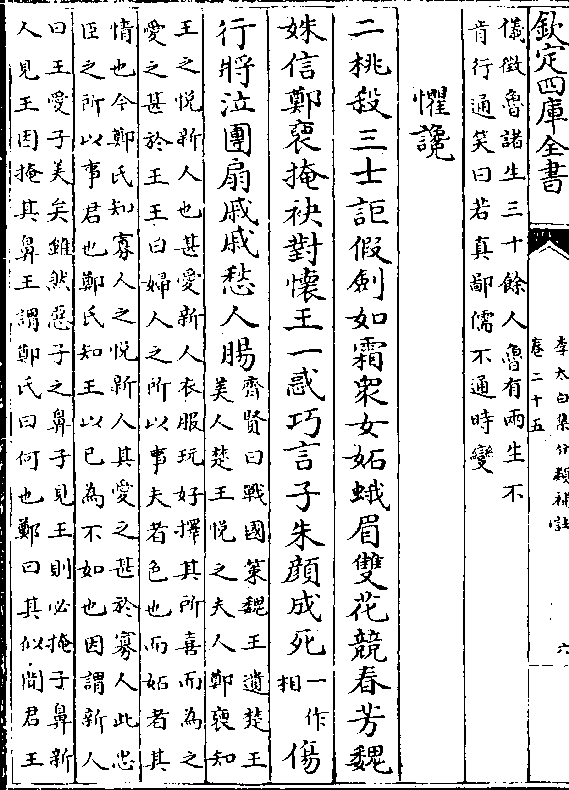 欽定四庫全書
李太白集分類補註
卷二十五
六
儀徴魯諸生三十餘人魯有兩生不
肯行通笑曰若真鄙儒不通時變
懼讒
二桃殺三士詎假劍如霜衆女妬蛾眉雙花競春芳魏
姝信鄭袤掩袂對懷王一惑巧言子朱顔成死
一作
相
傷
行將泣團扇戚戚愁人腸
齊賢曰戰國䇿魏王遺楚王
美人楚王悦之夫人鄭袤知
王之悦新人也甚愛新人衣服玩好擇其所喜而為之
愛之甚於王王曰婦人之所以事夫者色也而妬者其
情也今鄭氏知寡人之悦新人其愛之甚於寡人此忠
臣之所以事君也鄭氏知王以已為不如也因謂新人
曰王愛子美矣雖然惡子之鼻子見王則必掩子鼻新
人見王因掩其鼻王謂鄭氏曰何也鄭曰其似聞君王